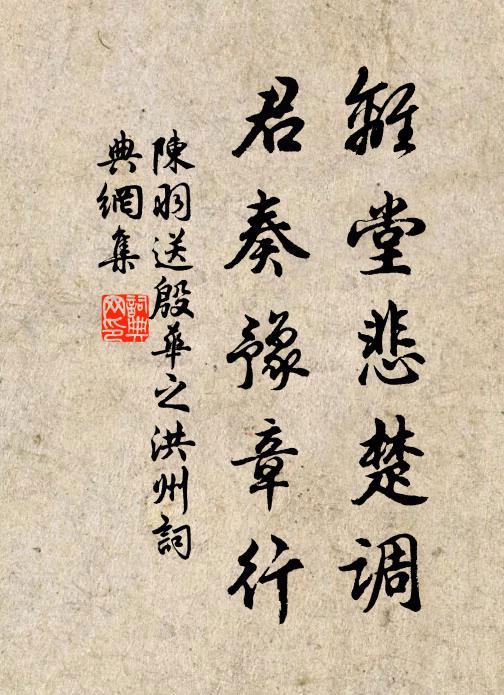 離堂悲楚調
君奏豫章行
陳羽送殷華之洪州詞
典網集
詞典網印